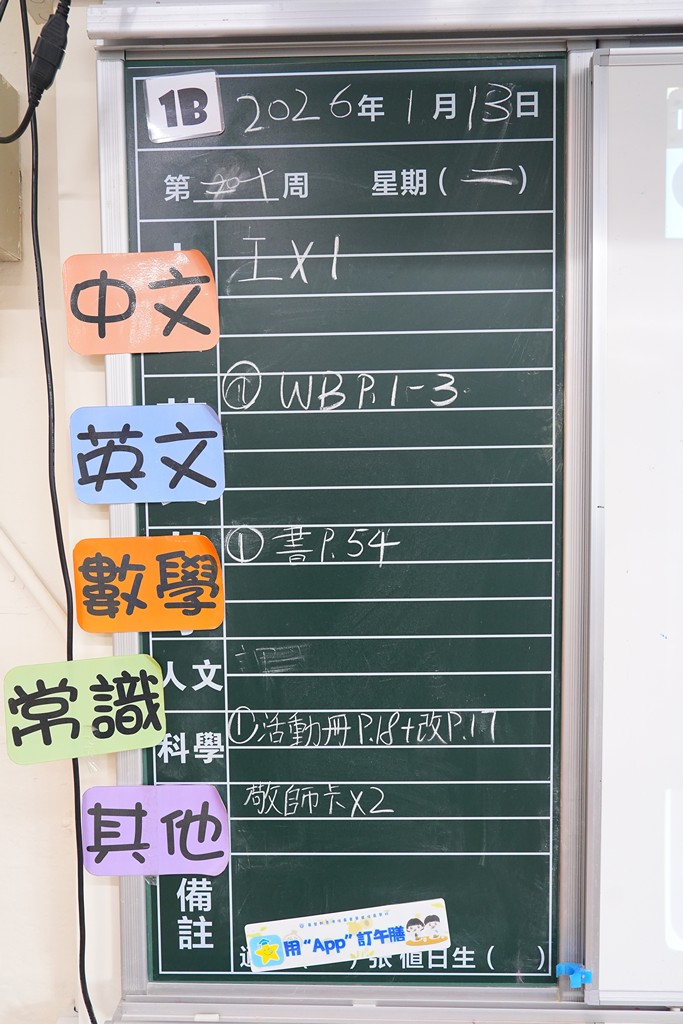 1B 2026年 1月13日
第 周 星期(二)
中文
工X1
英文
① WB P.1-3
數學
① 書P.54
人文
常識
科學
①活動冊P.18+改P.17
其他
敬師卡X2
備註
用"App"訂午膳
張 值日生( )